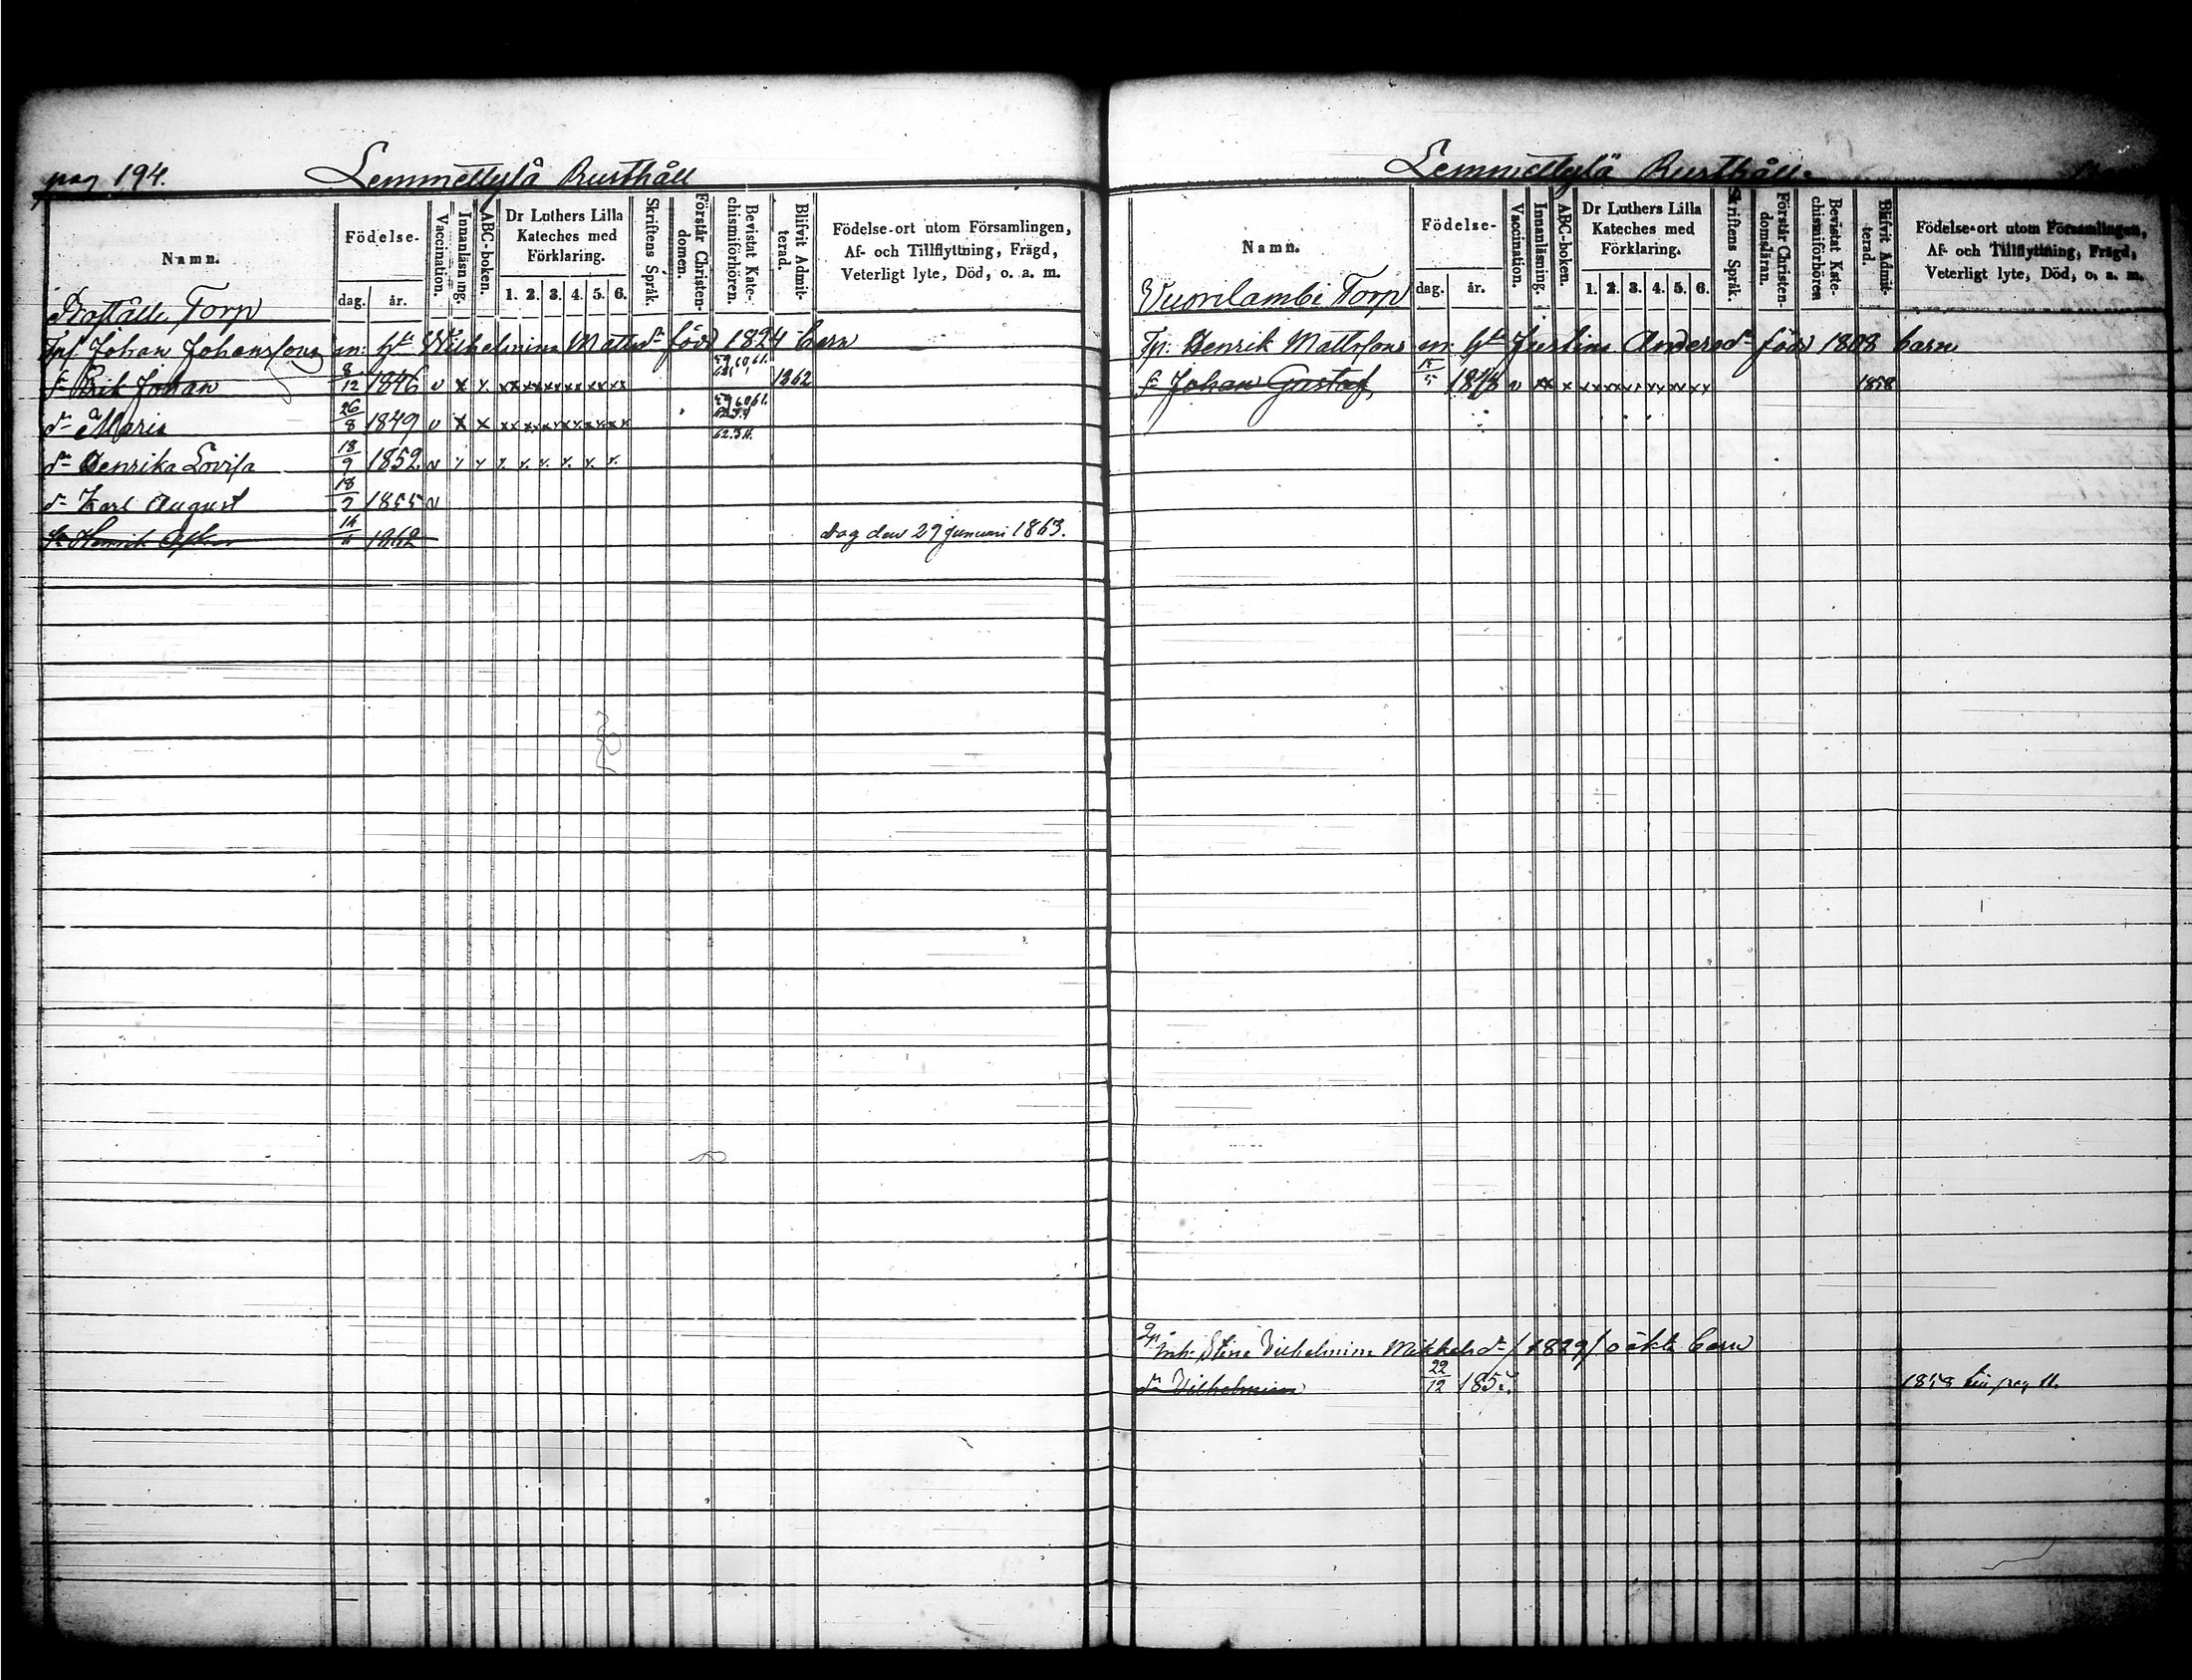 pag 194. Lemmettylä Rusthåll
Namn. Födelse- dag. år. Vaccination. Innanläsning. ABC-boken. Dr Luthers Lilla Kateches med Förklaring. 1. 2. 3. 4. 5. 6. Skriftens Språk. Förstår Christendomen. Bevistat Katechismiförhören. Blifvit Admitterad. Födelse-ort utom Församlingen, Af- och Tillflyttning, Frägd, Veterligt lyte, Död, o. a. m.
Torp
Johan Johanssons m: Wilhelmina Matsdr född 1824 barn
sn Erik Johan 8/12 1846 v x x xx xx xx xx xx xx 1862
dr Maria 26/8 1849 v x x xx xx xx xx xx xx 62.
dr Henrika Lovisa 18/9 1852 v
Karl August 18/9 1855 v
Henrik 1862 dog den 29 Januari 1863.
Lemmettylä Rusthåll.
Namn. Födelse- dag. år. Vaccination. Innanläsning. ABC-boken. Dr Luthers Lilla Kateches med Förklaring. 1. 2. 3. 4. 5. 6. Skriftens Språk. Förstår Christendomsläran. Bevistat Katechismiförhören Blifvit Admitterad. Födelse-ort utom Församlingen, Af- och Tillflyttning, Frägd, Veterligt lyte, Död, o. a. m.
Torp
Tp: Henrik Mattssons m: Justina Andersdr född 1808 barn
sn Johan Gustaf 1843 v xx x xx xx xx xx xx 1858
Inh: Stina Vilhelmina Mikkelsdr /1829/ oäkta barn
dr Vilhelmina 22/12 185 1858 pag 11.